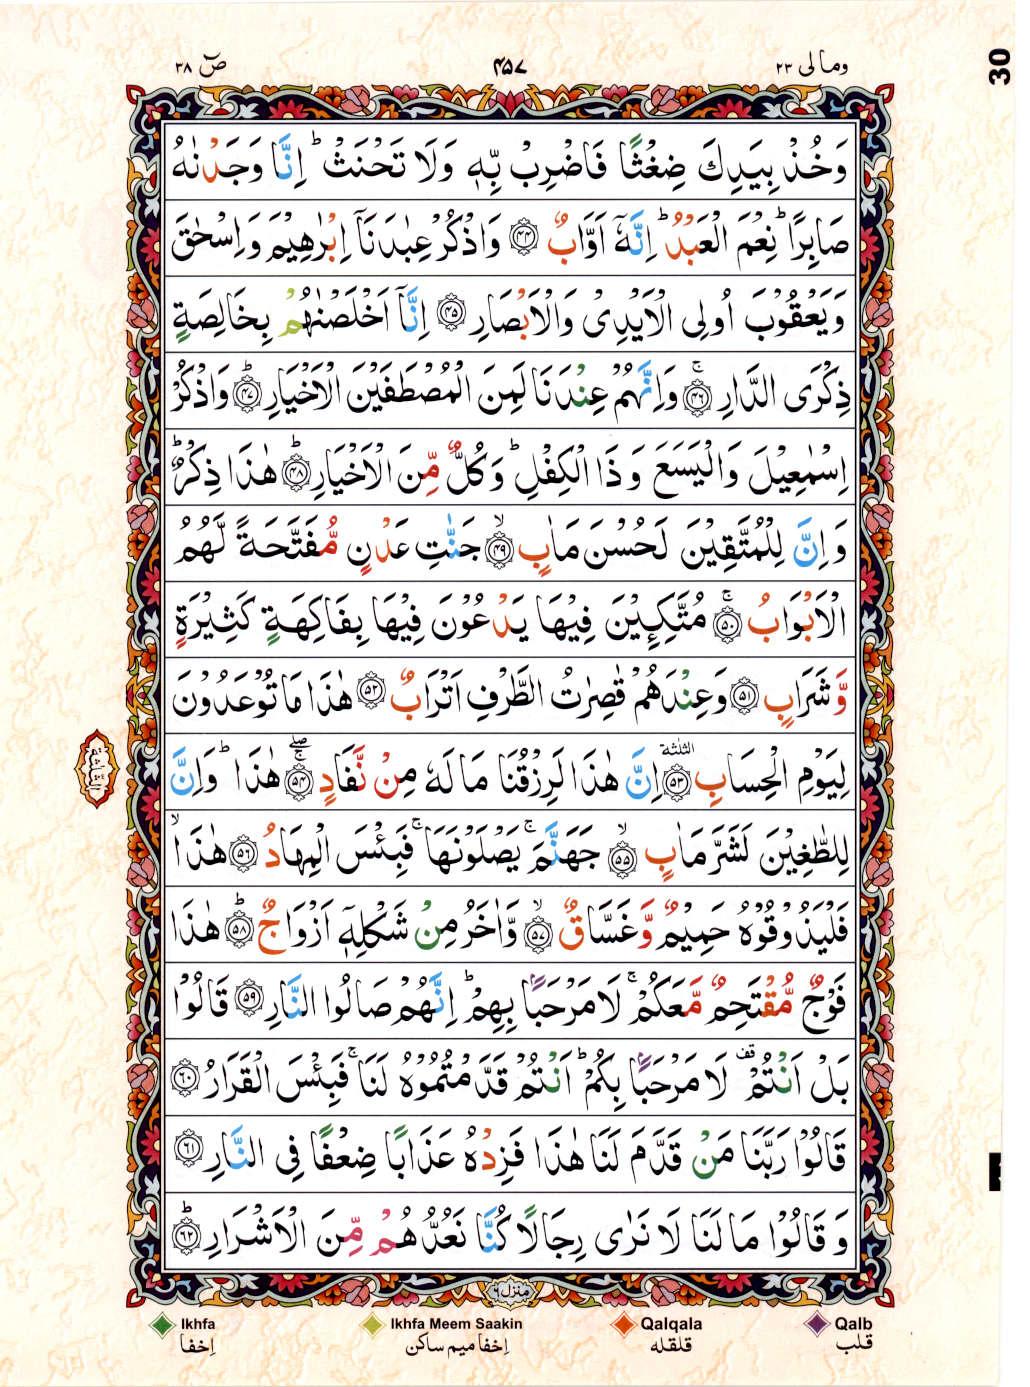 ومالی ۲۳
۴۵۷
صٓ ۳۸
30
وَخُذْ بِيَدِكَ ضِغْثًا فَاضْرِبْ بِّهٖ وَلَا تَحْنَثْ ؕ اِنَّا وَجَدْنٰهُ
صَابِرًا ؕ نِعْمَ الْعَبْدُ ؕ اِنَّهٗۤ اَوَّابٌ ﴿۴۴﴾ وَاذْكُرْ عِبٰدَنَاۤ اِبْرٰهِيْمَ وَاِسْحٰقَ
وَيَعْقُوْبَ اُولِى الْاَيْدِىْ وَالْاَبْصَارِ ﴿۴۵﴾ اِنَّاۤ اَخْلَصْنٰهُمْ بِخَالِصَةٍ
ذِكْرَى الدَّارِ ۚ‏ ﴿۴۶﴾ وَاِنَّهُمْ عِنْدَنَا لَمِنَ الْمُصْطَفَيْنَ الْاَخْيَارِ ؕ ﴿۴۷﴾ وَاذْكُرْ
اِسْمٰعِيْلَ وَالْيَسَعَ وَذَا الْكِفْلِ ؕ وَكُلٌّ مِّنَ الْاَخْيَارِ ؕ ﴿۴۸﴾ هٰذَا ذِكْرٌ ؕ
وَاِنَّ لِلْمُتَّقِيْنَ لَحُسْنَ مَاٰبٍ ۙ ﴿۴۹﴾ جَنّٰتِ عَدْنٍ مُّفَتَّحَةً لَّهُمُ
الْاَبْوَابُ ۚ ﴿۵۰﴾ مُتَّكِـِٕيْنَ فِيْهَا يَدْعُوْنَ فِيْهَا بِفَاكِهَةٍ كَثِيْرَةٍ
وَّشَرَابٍ ﴿۵۱﴾ وَعِنْدَهُمْ قٰصِرٰتُ الطَّرْفِ اَتْرَابٌ ﴿۵۲﴾ هٰذَا مَا تُوْعَدُوْنَ
لِيَوْمِ الْحِسَابِ ﴿۵۳﴾ الثلثة اِنَّ هٰذَا لَرِزْقُنَا مَا لَهٗ مِنْ نَّفَادٍ ۚ ۖ ﴿۵۴﴾ هٰذَا ؕ وَاِنَّ
لِلطّٰغِيْنَ لَشَرَّ مَاٰبٍ ۙ ﴿۵۵﴾ جَهَنَّمَ ۚ يَصْلَوْنَهَا ۚ فَبِئْسَ الْمِهَادُ ﴿۵۶﴾ هٰذَا ۙ
فَلْيَذُوْقُوْهُ حَمِيْمٌ وَّغَسَّاقٌ ۙ ﴿۵۷﴾ وَّاٰخَرُ مِنْ شَكْلِهٖۤ اَزْوَاجٌ ؕ ﴿۵۸﴾ هٰذَا
فَوْجٌ مُّقْتَحِمٌ مَّعَكُمْ ۚ لَا مَرْحَبًۢا بِهِمْ ؕ اِنَّهُمْ صَالُوا النَّارِ ﴿۵۹﴾ قَالُوْا
بَلْ اَنْتُمْ قف لَا مَرْحَبًۢا بِكُمْ ؕ اَنْتُمْ قَدَّمْتُمُوْهُ لَنَا ۚ فَبِئْسَ الْقَرَارُ ﴿۶۰﴾
قَالُوْا رَبَّنَا مَنْ قَدَّمَ لَنَا هٰذَا فَزِدْهُ عَذَابًا ضِعْفًا فِى النَّارِ ﴿۶۱﴾
وَقَالُوْا مَا لَنَا لَا نَرٰى رِجَالًا كُنَّا نَعُدُّهُمْ مِّنَ الْاَشْرَارِ ؕ ﴿۶۲﴾
منزل ۶
Ikhfa
اِخفا
Ikhfa Meem Saakin
اِخفا میم ساکن
Qalqala
قلقله
Qalb
قلب